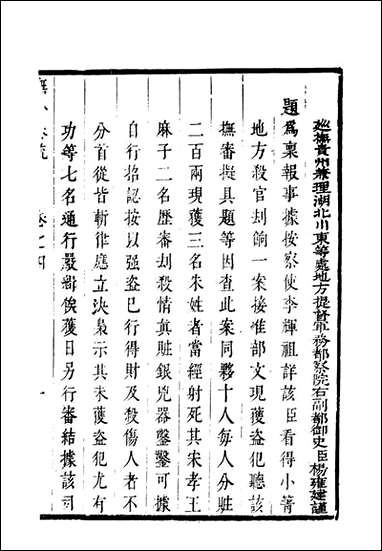 巡撫貴州兼理湖北川東等處地方提督軍務都察院右副都御史臣楊雍建謹
題爲稟報事據按察使李輝祖詳該臣看得小箐
地方殺官刦餉一案接准部文現獲盗犯聽該
撫審擬具題等因查此案同夥十人每人分賍
二百兩現獲三名朱姓者當經射死其宋孝王
麻子二名歷審刦殺情真賍銀兇器鑿鑿可據
自行招認按以强盗已行得財及殺傷人者不
分首從皆斬律應立決梟示其未獲盗犯尤有
功等七名通行嚴緝俟獲日另行審結據該司
撫 疏 卷之四 一